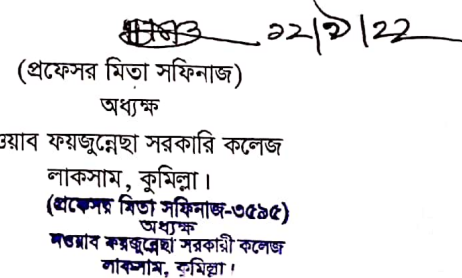 ১২/৯/২২
(প্রফেসর মিতা সফিনাজ)
অধ্যক্ষ
ওয়াব ফয়জুন্নেছা সরকারি কলেজ
লাকসাম, কুমিল্লা।
(প্রফেসর মিতা সফিনাজ-৩৫৯৫)
অধ্যক্ষ
নওয়াব ফয়জুন্নেছা সরকারী কলেজ
লাকসাম, কুমিল্লা।